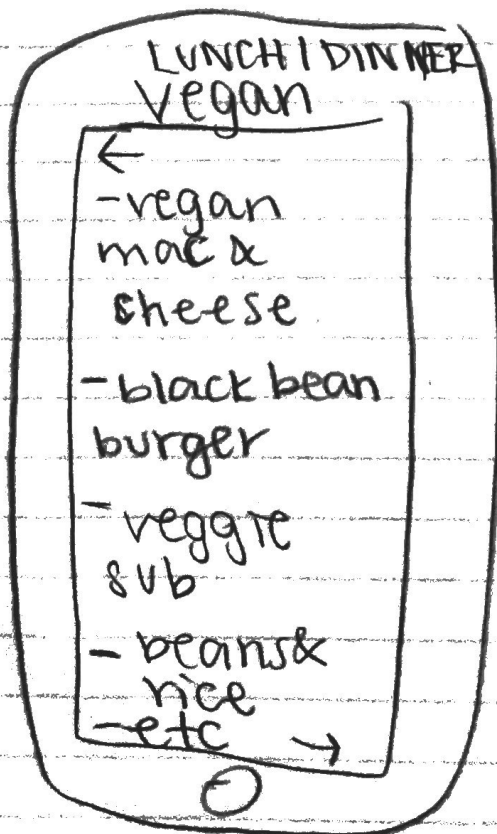 LUNCH / DINNER
vegan
←
- vegan
mac &
cheese
- black bean
burger
- veggie
sub
- beans &
rice
- etc →